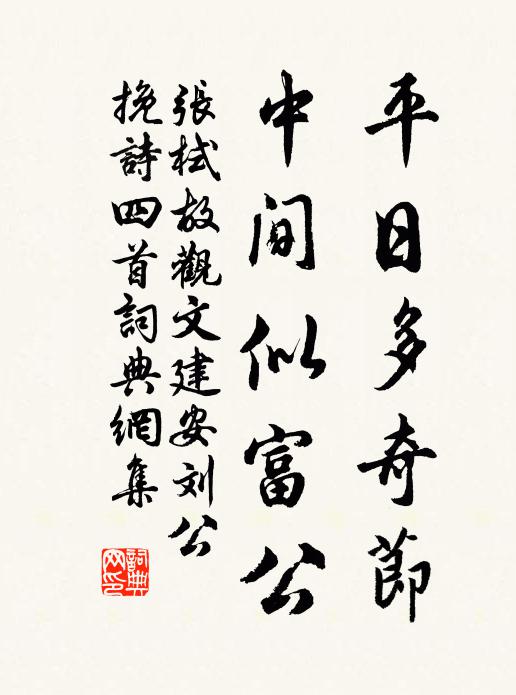 平日多奇節
中間似富公
張栻故觀文建安刘公
挽詩四首詞典網集
詞典网印